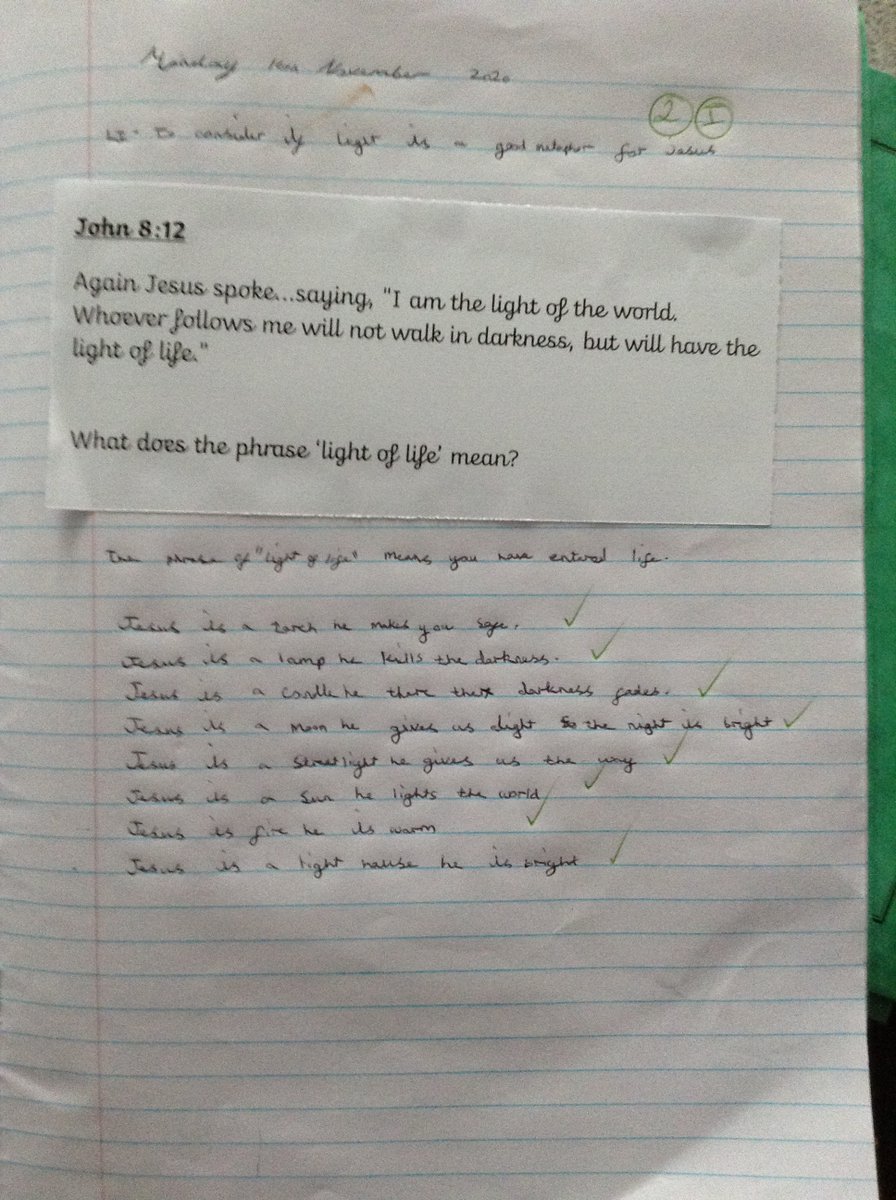 Monday 16th November 2020
2 I
LI: To consider if light is a good metaphor for Jesus
John 8:12
Again Jesus spoke...saying, "I am the light of the world.
Whoever follows me will not walk in darkness, but will have the
light of life."
What does the phrase ‘light of life’ mean?
The phrase of "light of life" means you have entered life.
Jesus is a torch he makes you safe.
Jesus is a lamp he kills the darkness.
Jesus is a candle he there darkness fades.
Jesus is a moon he gives us light so the night is bright
Jesus is a streetlight he gives us the way
Jesus is a sun he lights the world
Jesus is fire he is warm
Jesus is a light hause he is bright